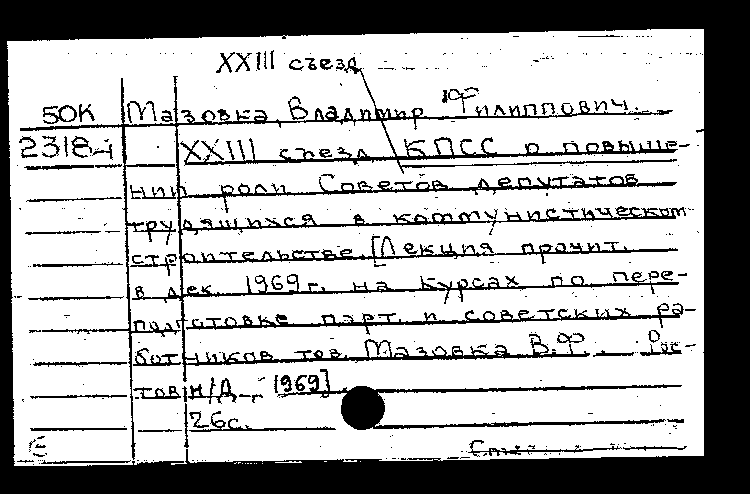 XXIII съезд
50К Мазовка, Владимир Филиппович.
2318-4 XXIII съезд КПСС о повыше-
нии роли Советов депутатов
трудящихся в коммунистическом
строительстве. [Лекция прочит.
в дек. 1969г. на курсах по пере-
подготовке парт. и советских ра-
ботников тов. Мазовка В.Ф. Рос-
тов н/Д., [1969].
26с.
Е